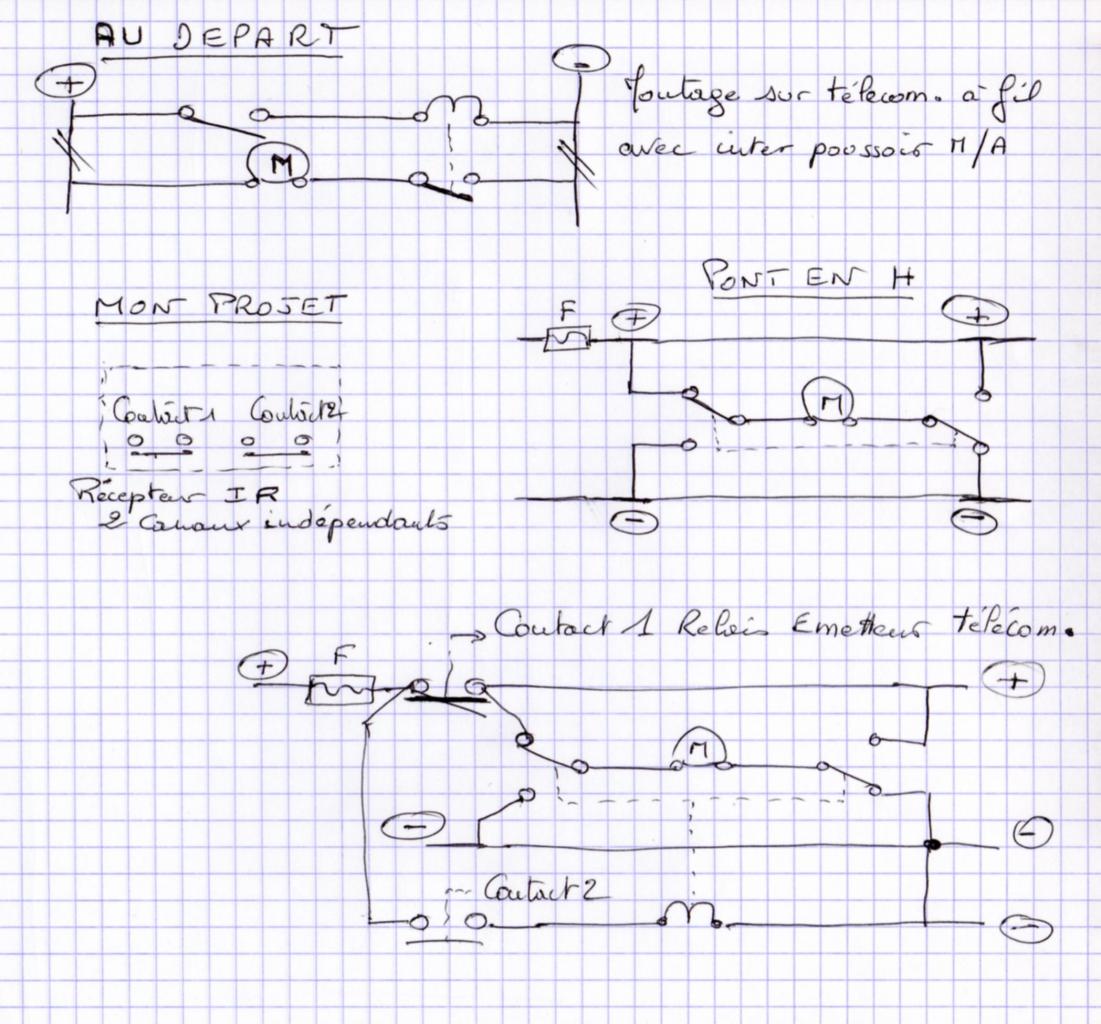 AU DEPART
+
-
Montage sur télécom. à fil
avec inter poussoir M/A
M
PONT EN H
MON PROJET
F
+
+
Contact 1 Contact 2
M
Récepteur IR
2 Canaux indépendants
-
-
Contact 1 Relais Emetteur télécom.
+
F
+
M
-
-
Contact 2
-